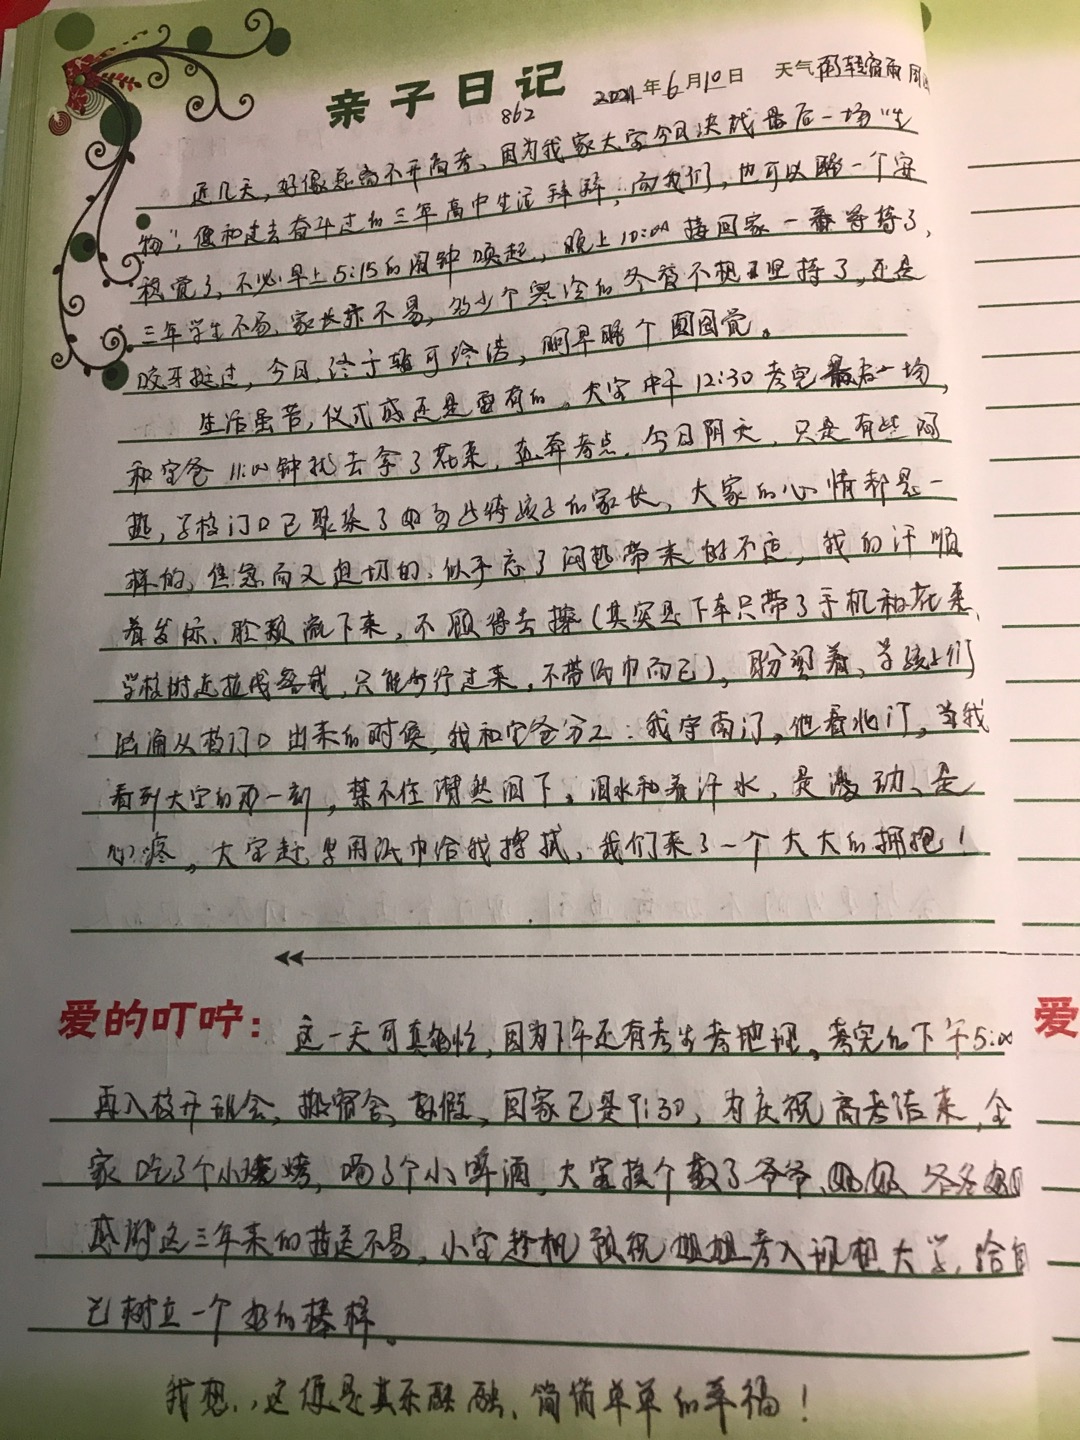 亲子日记
862
2021年6月10日 天气 阴转雷雨 周
近几天,好像总离不开高考、因为我家大宝今日决战最后一场“生
物”,便和过去奋斗过的三年高中生活拜拜,而我们,也可以睡一个安
稳觉了,不必早上5:15的闹钟唤起,晚上10:00接回家一番等待了,
三年学生不易、家长亦不易,多少个寒冷的冬夜不想再坚持了,还是
咬牙挺过,今日,终于可终结,啊早睡个圆囵觉。
生活虽苦,仪式感还是要有的。大宝中午12:30考完最后一场,
和宝爸11:00钟就去拿了花来,直奔考点,今日阴天,只是有些闷
热,学校门口已聚集了等待孩子的家长,大家的心情都是一
样的,焦急而又迫切的,似乎忘了闷热带来的不适,我的汗顺
着发际、脸颊流下来,不顾得去擦(其实是下车只带了手机和花束、
学校附近拉成警戒,只能步行过来,不带纸巾而已),盼望着,学孩子们
汹涌从校门口出来的时候,我和宝爸分工:我守南门,他看北门,当我
看到大宝的那一刻,禁不住潸然泪下。泪水和着汗水,是激动、是
心疼,大宝赶紧用纸巾给我擦拭,我们来了一个大大的拥抱!
爱的叮咛: 这一天可真匆忙,因为下午还有考生考地理,考完的下午5:00
爱
再入校开班会、搬宿舍、放假、回家已是9:30,为庆祝高考结束,全
家吃了个小烧烤,喝了个小啤酒,大宝挨个敬了爷爷、奶奶、爸爸
感谢这三年来的接送不易,小宝趁机预祝姐姐考入理想大学,给自
己树立一个好的榜样。
我想,这便是其乐融融、简简单单的幸福!